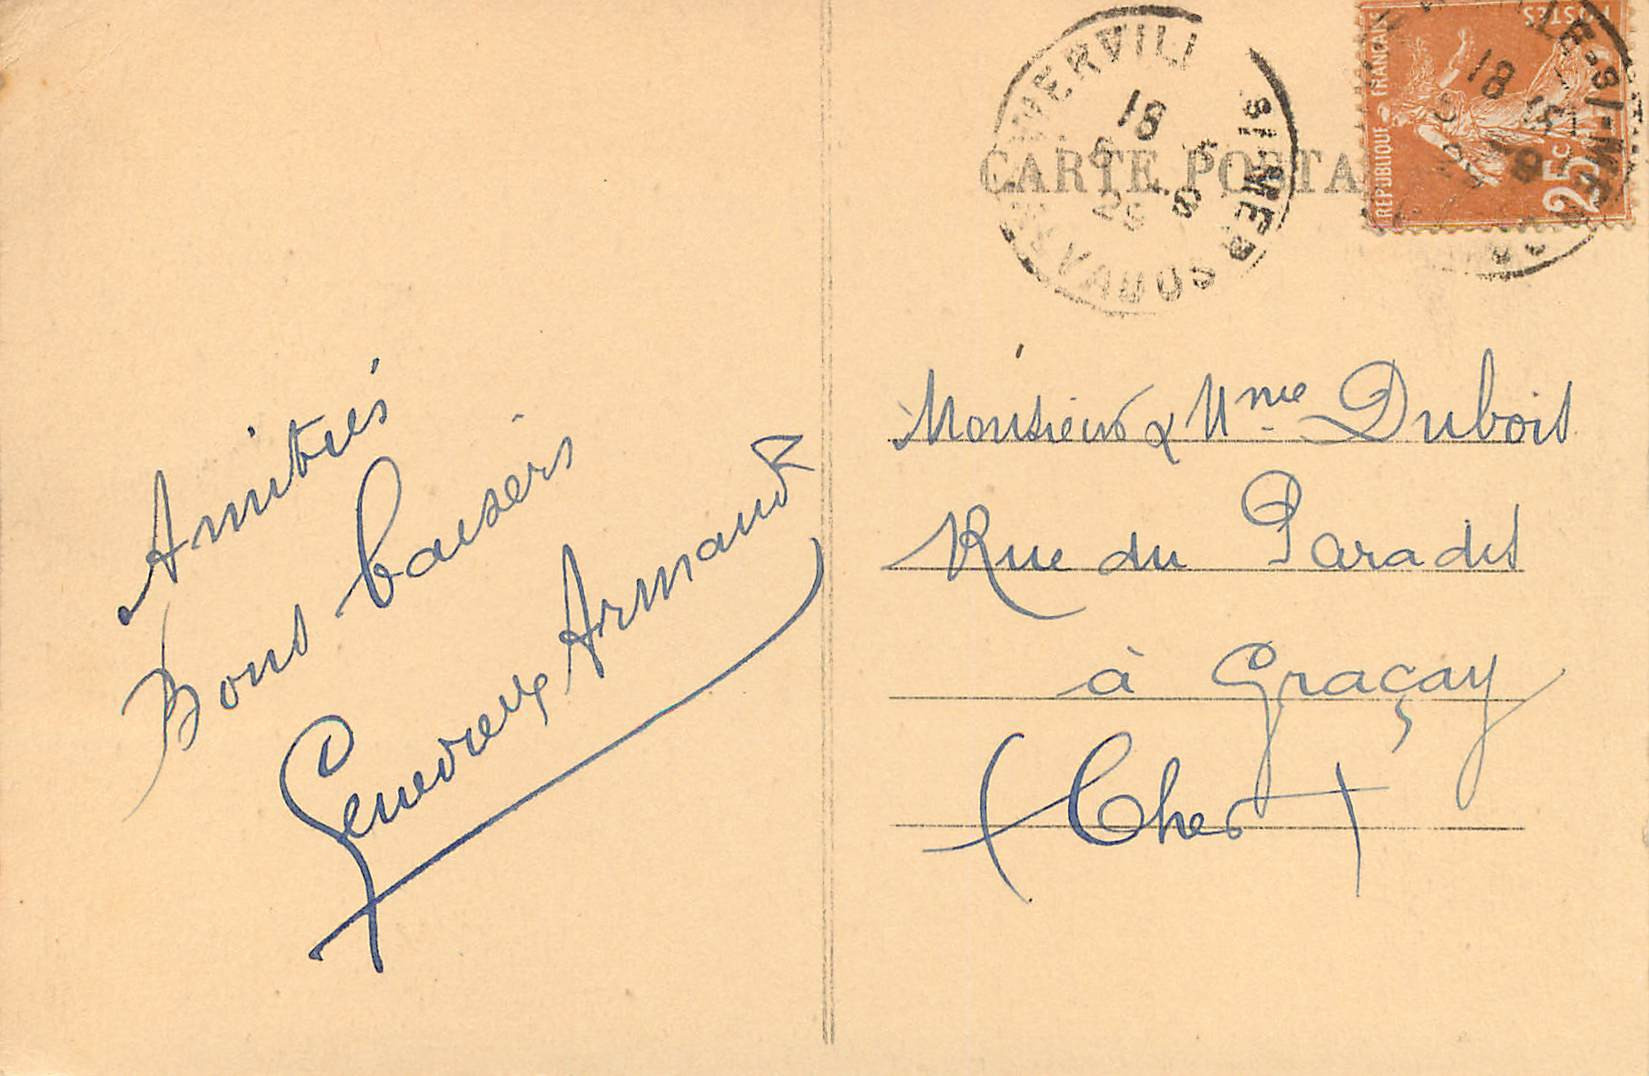 Amitiés
Bons baisers
Geneviève Armand
CARTE POSTA
18
RÉPUBLIQUE FRANÇAISE
POSTES
25 c
Monsieur & Mme Dubois
Rue du Paradis
à Graçay
(Cher)